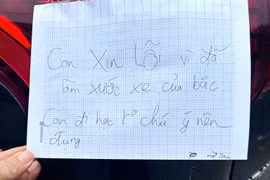 Con Xin Lỗi vì đã
làm xước xe của bác
Con đi học ko chú ý nên
đụng